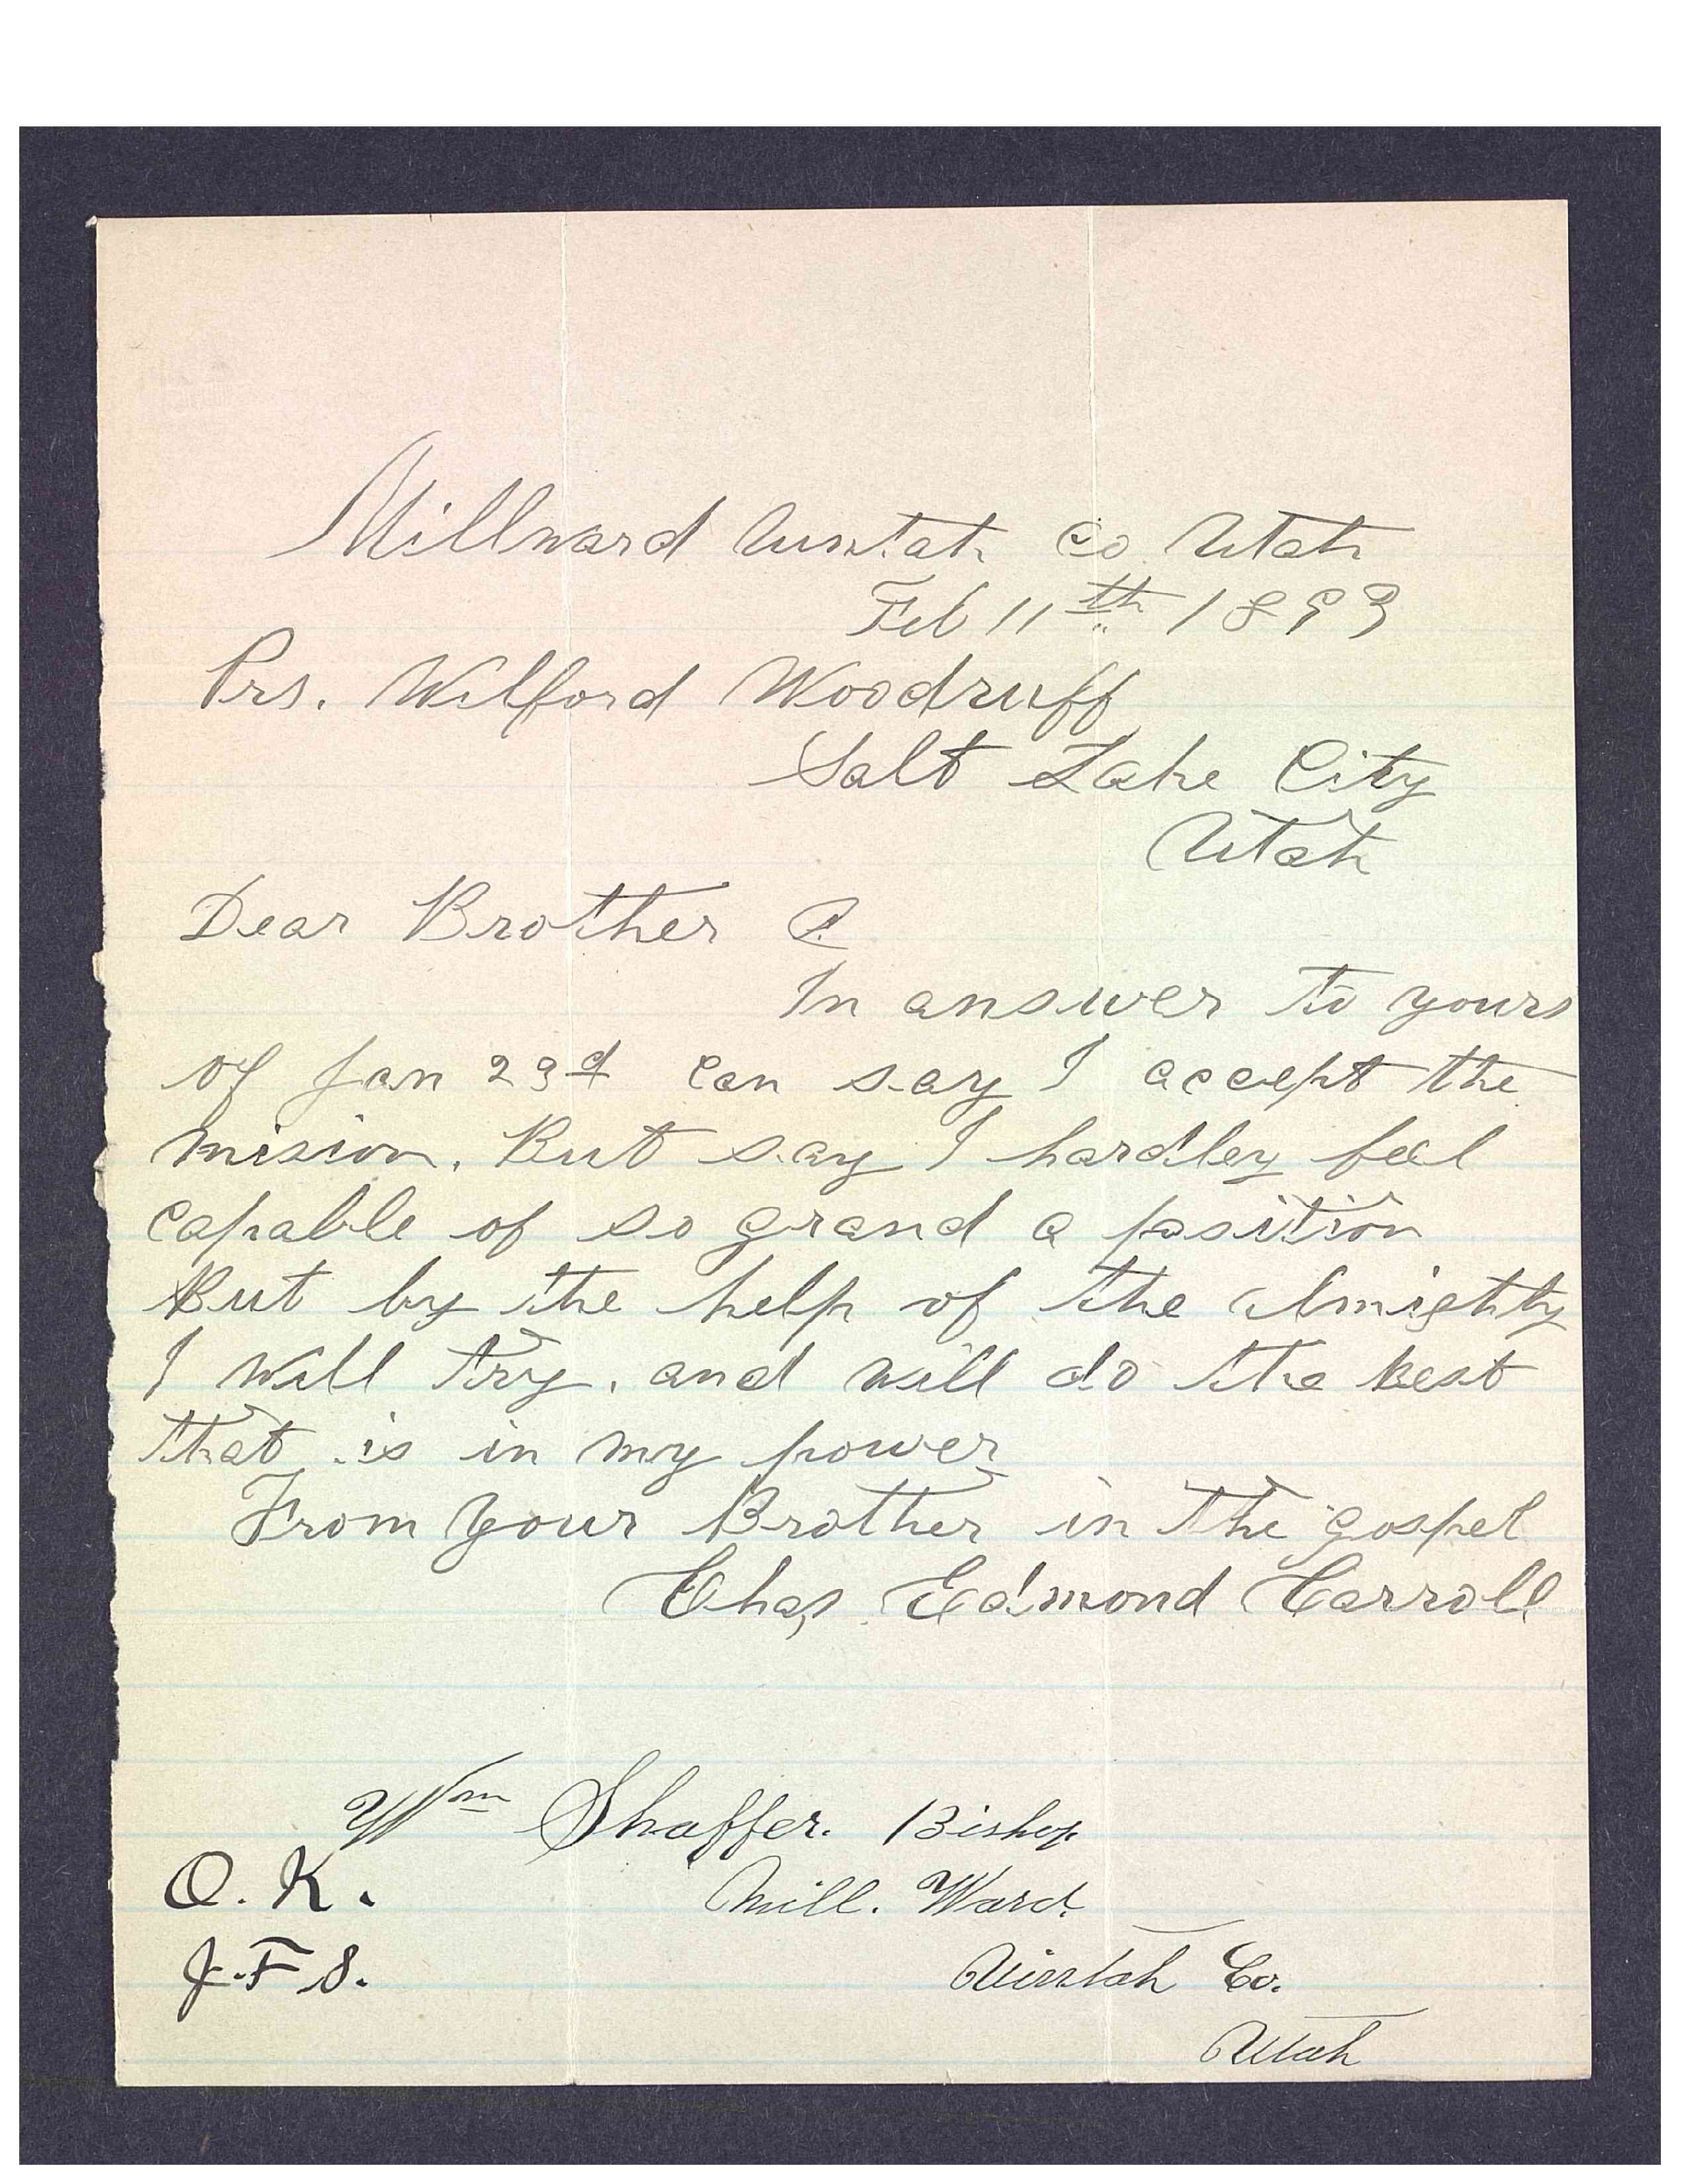 Millward Uintah Co Utah
Feb 11th 1893
Prs. Wilford Woodruff
Salt Lake City
Utah
Dear Brother
In answer to yours
of Jan 23d can say I accept the
mision. But say I hardley feel
capable of so grand a position
But by the help of the Almighty
I will try, and will do the best
that is in my power
From your Brother in the gospel
Chas, Edmond Carroll
Wm Shaffer. Bishop
Mill. Ward.
Uintah Co.
Utah
O. K.
J. F. S.